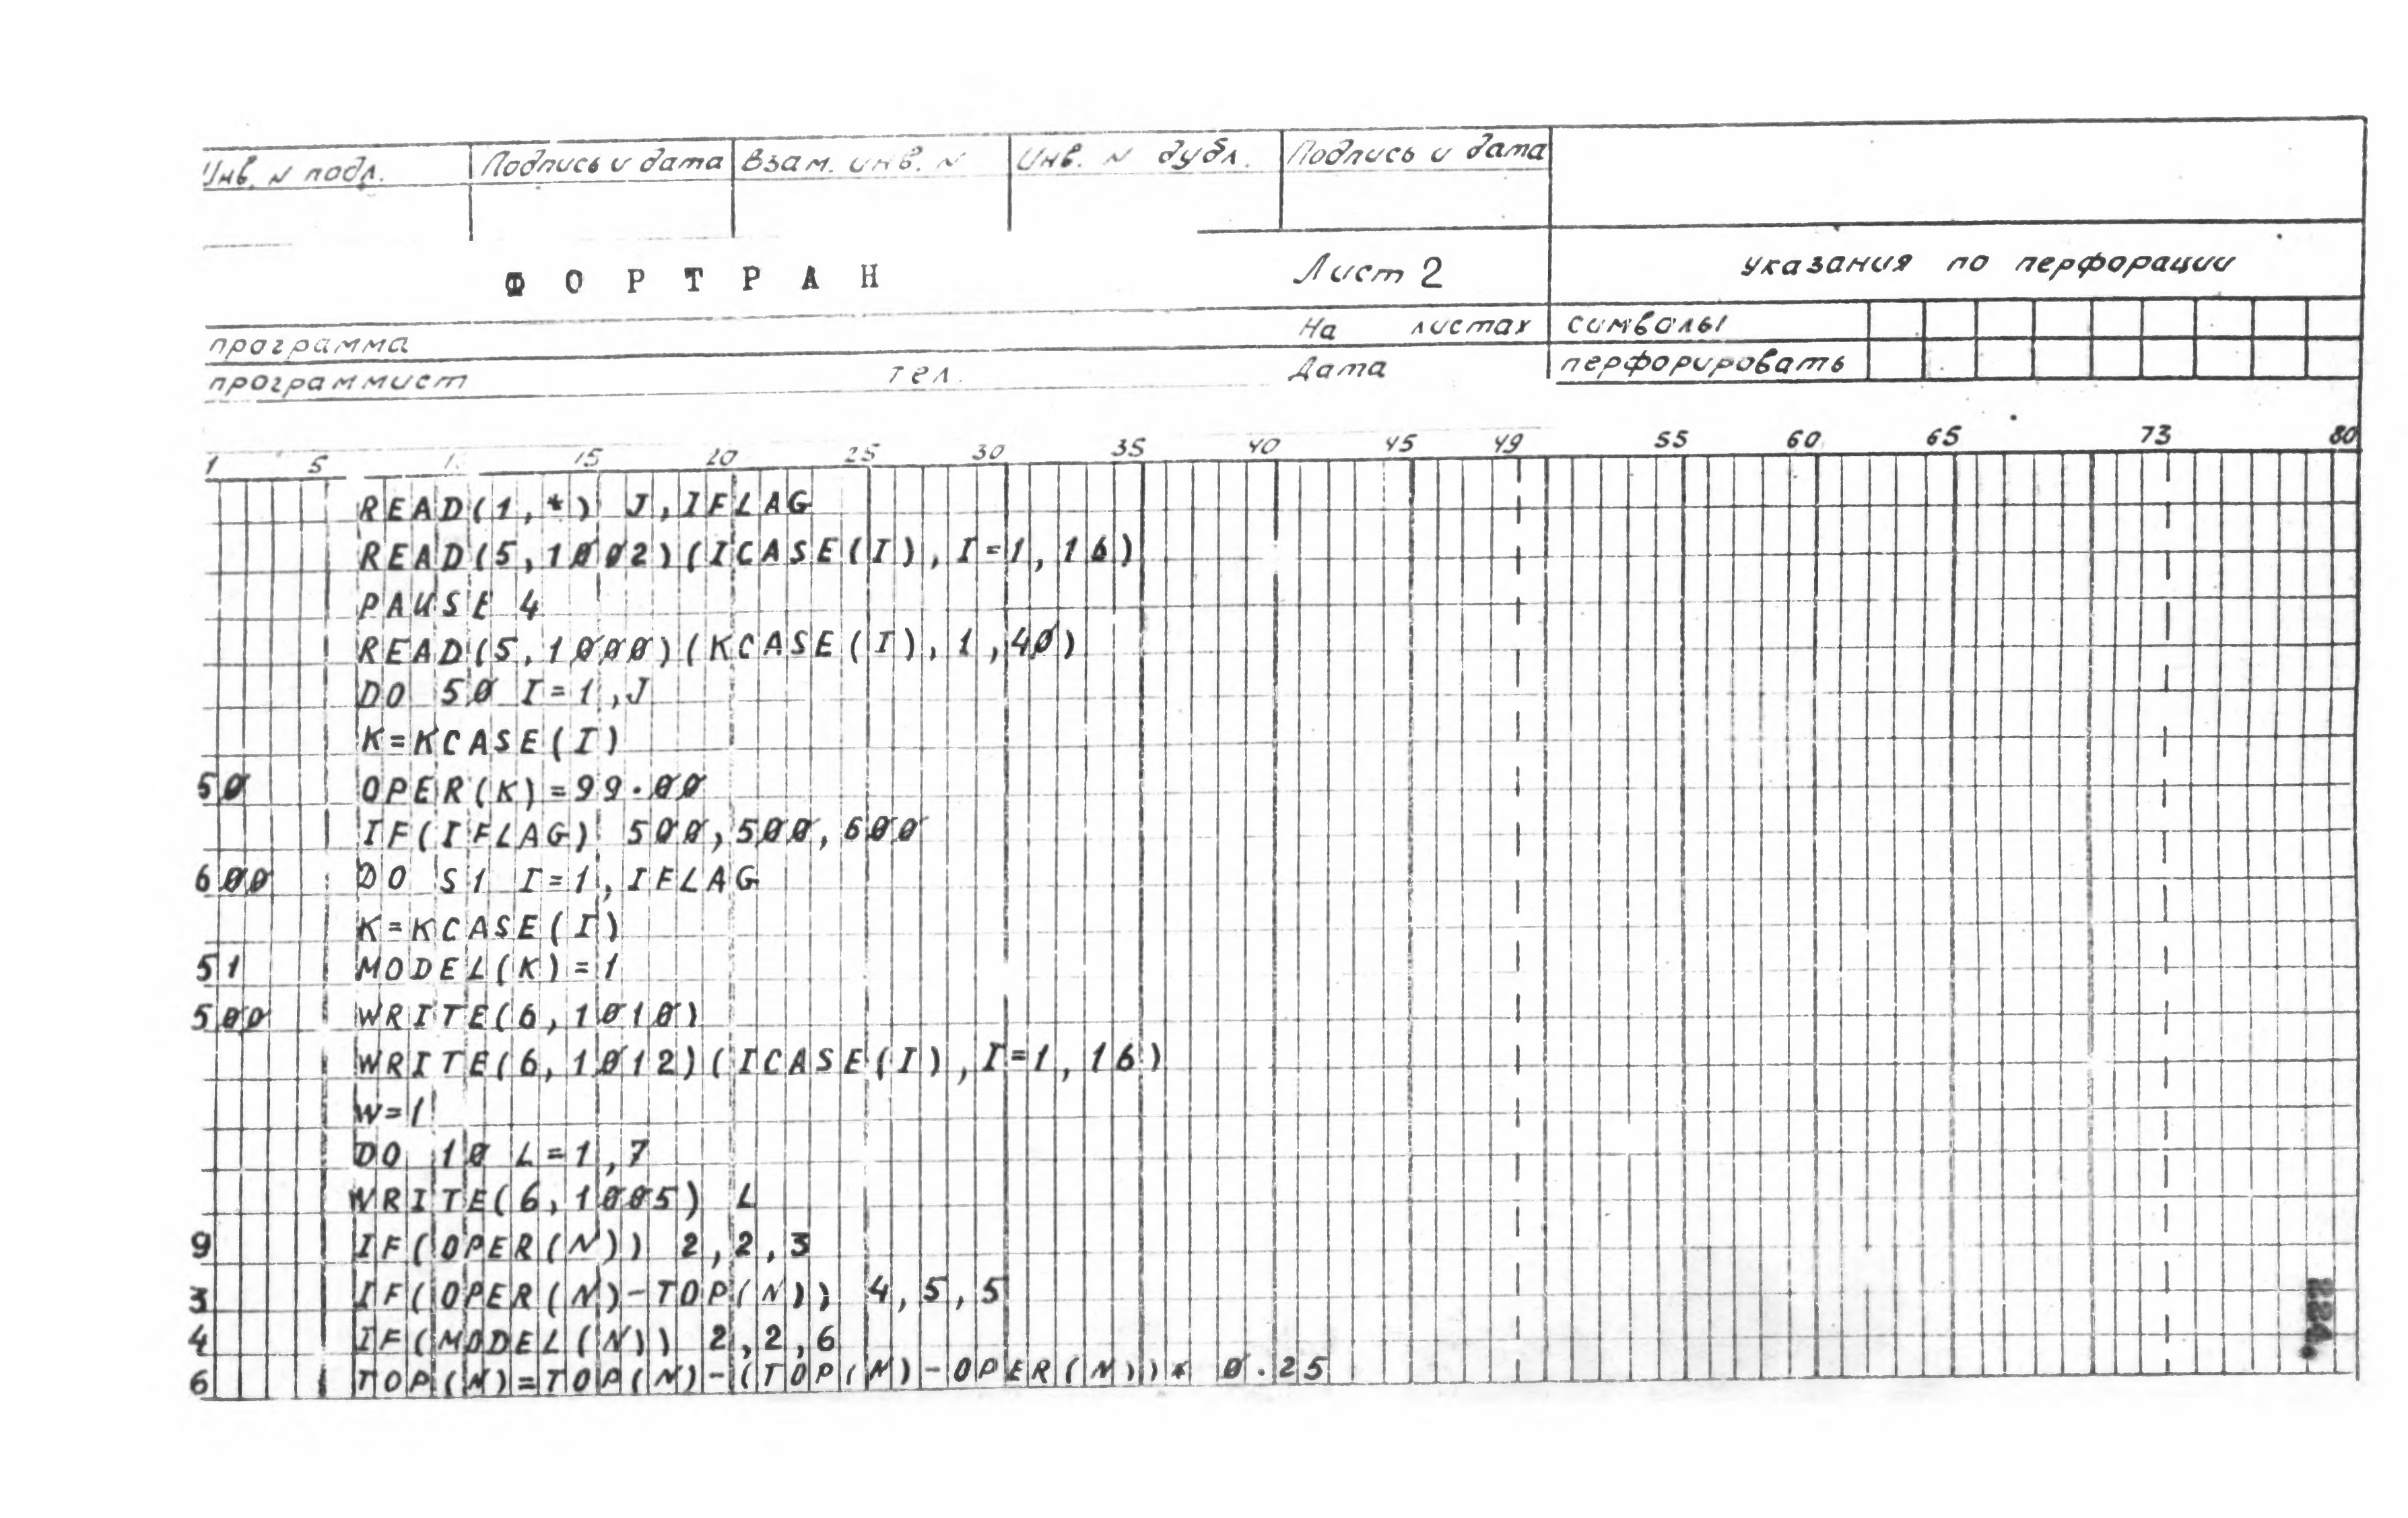 Инв. N подл. Подпись и дата Взам. инв. N Инв. N дубл. Подпись и дата
ФОРТРАН Лист 2 указания по перфорации
программа На листах символы
программист тел. Дата перфорировать
1 5 10 15 20 25 30 35 40 45 49 55 60 65 73 80
READ(1,*) J,IFLAG
READ(5,1002)(ICASE(I),I=1,16)
PAUSE 4
READ(5,1000)(KCASE(I),1,40)
DO 50 I=1,J
K=KCASE(I)
50 OPER(K)=99.00
IF(IFLAG) 500,500,600
600 DO S1 I=1,IFLAG
K=KCASE(I)
51 MODEL(K)=1
500 WRITE(6,1010)
WRITE(6,1012)(ICASE(I),I=1,16)
W=1
DO 10 L=1,7
WRITE(6,1005) L
9 IF(OPER(N)) 2,2,3
3 IF(OPER(N)-TOP(N)) 4,5,5
4 IF(MODEL(N)) 2,2,6
6 TOP(N)=TOP(N)-(TOP(N)-OPER(N))* 0.25
224.